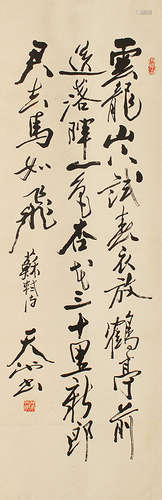 雲龍山下試春衣放鶴亭前
送落暉一色杏花三十里新郎
君去馬如飛
蘇軾句
天 書